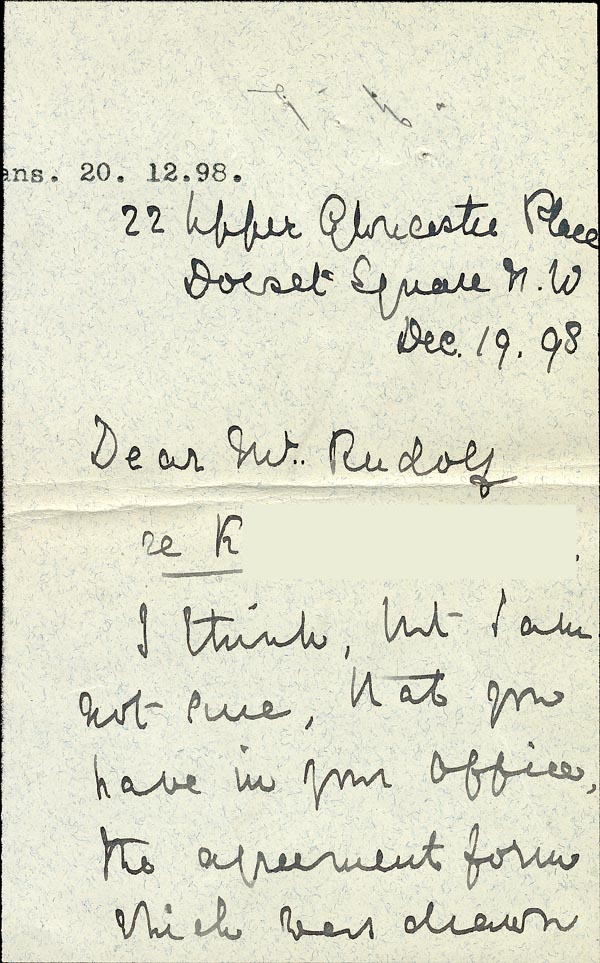 ans. 20. 12.98.
22 Upper Gloucester Place
Dorset Square N.W
Dec. 19. 98
Dear Mr. Rudolf
re K
I think, but I am
not sure, that you
have in your office,
the agreement form
which was drawn